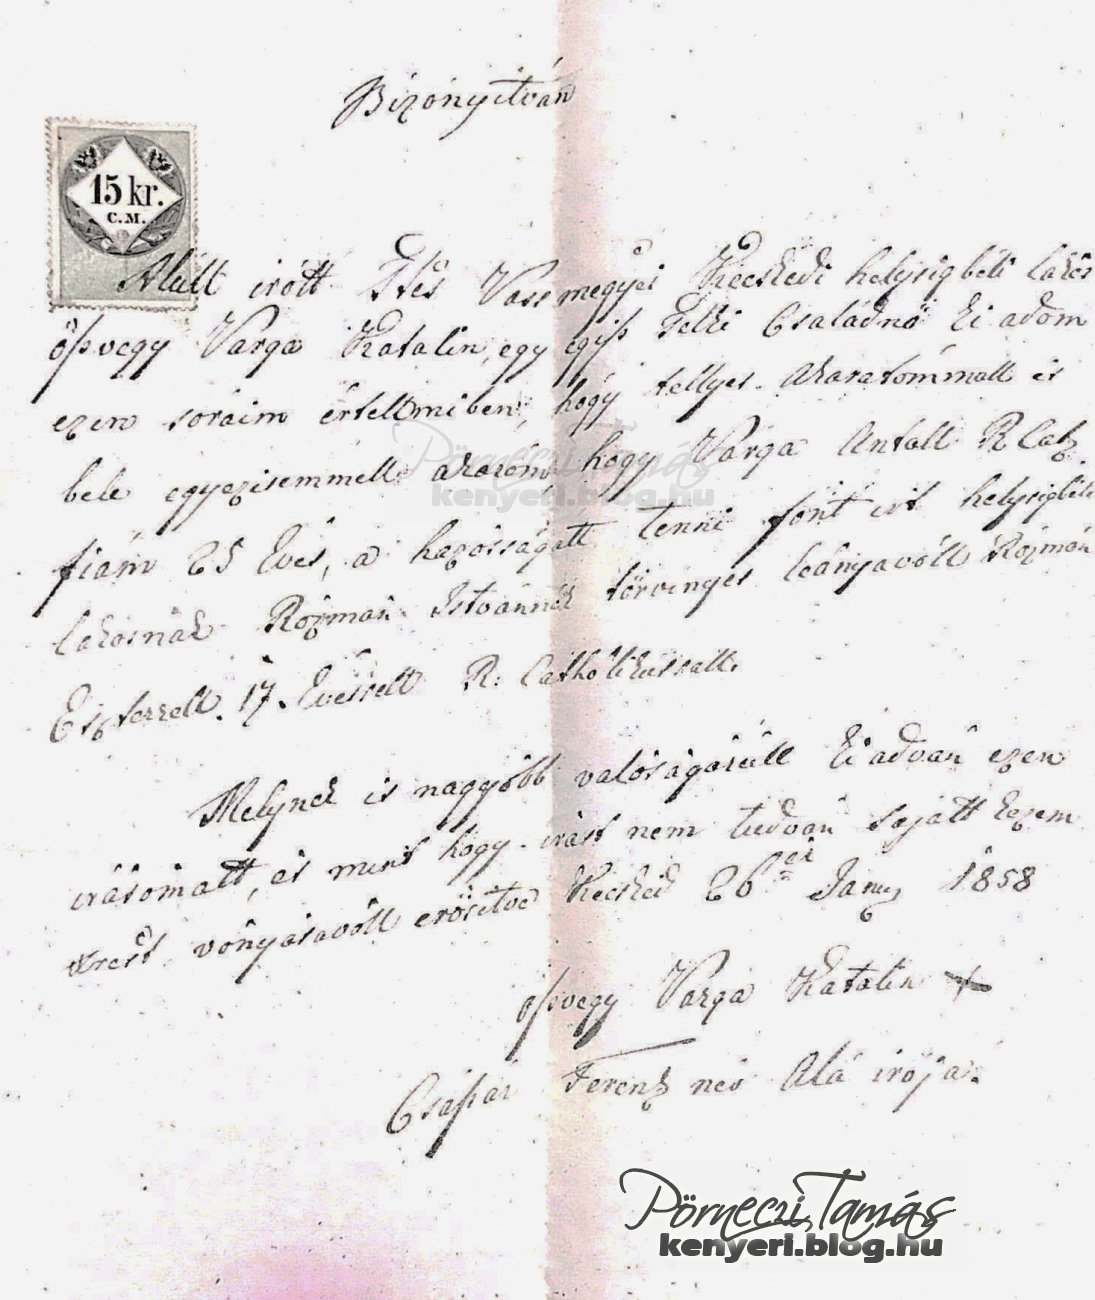 Bizónyitván
15 kr.
C.M.
Alúlt irótt Ns Vassmegyei Kecskédi helységbéli lakós
öszvegy Varga Katalin, egy egész Telki Családnö ki adom
ezen soraim értellmiben, hógy tellyes akaratómmall és
bele egyezisemmell akaróm hogy Varga Antall R Catz
fiám 25 Eves, a hazosságatt tenni fönt irt helységbéli
lakósnak Rózman Istvánnak törvinyes leányavóll Rózmán
Eszterrell. 17. Evessell R: Cathólikussall.
Melynek is nagyobb valóságárúll ki adván ezen
irásomatt, és mint hogy irást nem tudván saját kezem
kreszt vónyásavóll erösitve Kecskéd 26ai Januz 1858
öszvegy Varga Katalin +
Csaszar Ferenz név Alá irója.
Pörneczi Tamás
kenyeri.blog.hu
Pörneczi Tamás
kenyeri.blog.hu